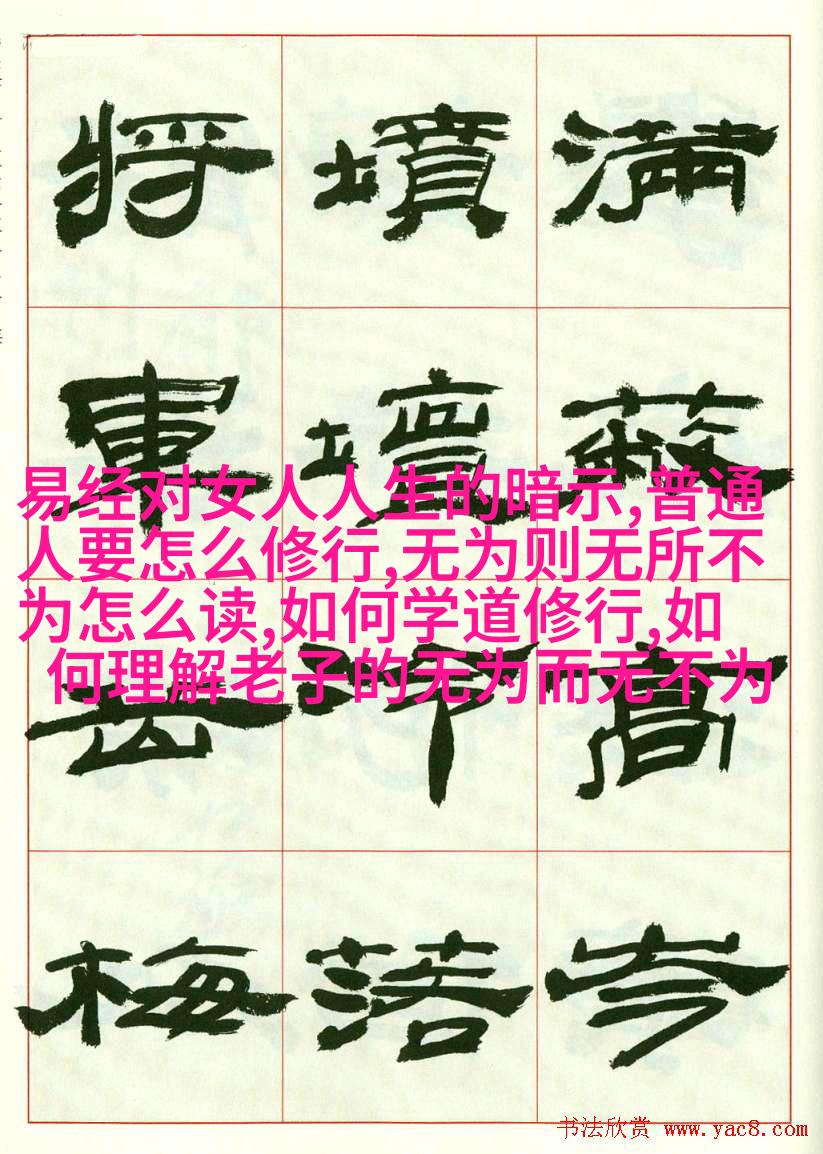 滿蔽高岑
墳壇冷落
將軍岳梅
易经对女人人生的暗示,普通
人要怎么修行,无为则无所不
为怎么读,如何学道修行,如
何理解老子的无为而无不为
书法欣赏 www.yac8.com